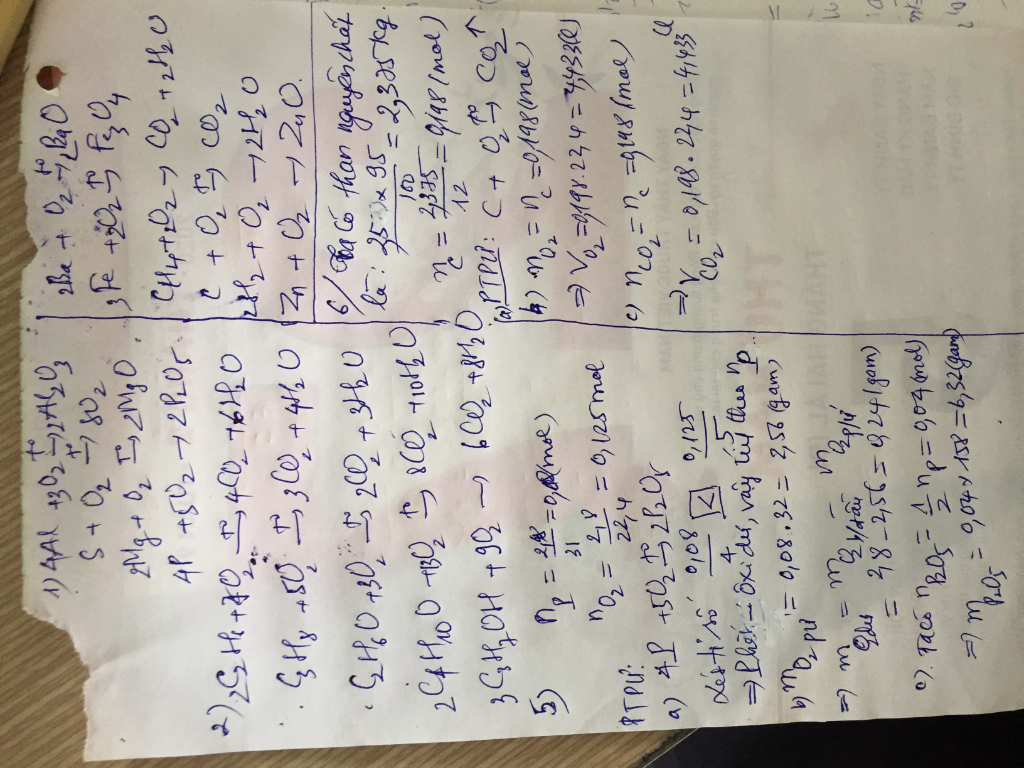 1) 4Al + 3O₂ →(t°) 2Al₂O₃
S + O₂ →(t°) SO₂
2Mg + O₂ →(t°) 2MgO
4P + 5O₂ → 2P₂O₅
2) 2C₂H₆ + 7O₂ →(t°) 4CO₂ + 6H₂O
C₃H₈ + 5O₂ →(t°) 3CO₂ + 4H₂O
C₂H₆O + 3O₂ →(t°) 2CO₂ + 3H₂O
2C₄H₁₀O + 13O₂ →(t°) 8CO₂ + 10H₂O
C₃H₇OH + 9O₂ → 6CO₂ + 8H₂O
5)
n_P = /31 = (mol)
n_O₂ = 2,8/22,4 = 0,125 mol
PTPƯ:
a) 4P + 5O₂ →(t°) 2P₂O₅
Xét tỉ số 0,08/4 < 0,125/5
⇒ Phốt oxi dư, vậy tính theo n_P.
b) m_O₂ pứ = 0,08.32 = 2,56 (gam)
⇒ m_O₂ dư = m_O₂ - m_O₂ p/ứ
= 2,8 - 2,56 = 0,24 (gam)
c). Ta có n_P₂O₅ = 1/2 n_P = 0,04 (mol)
⇒ m_P₂O₅ = 0,04 x 158 = 6,32 (gam)
2Ba + O₂ →(t°) 2BaO
3Fe + 2O₂ →(t°) Fe₃O₄
CH₄ + 2O₂ → CO₂ + 2H₂O
C + O₂ →(t°) CO₂
2H₂ + O₂ → 2H₂O
Zn + O₂ → ZnO
6/ Ta có than nguyên chất
là: x 95/100 = 2,375 kg.
n_C = 2,375/12 = 0,198 (mol)
(a) PTPƯ: C + O₂ →(t°) CO₂ ↑
b) n_O₂ = n_C = 0,198 (mol)
⇒ V_O₂ = 0,198.22,4 = 4,433 (l)
c) n_CO₂ = n_C = 0,198 (mol)
⇒ V_CO₂ = 0,198.22,4 = 4,433 (l)